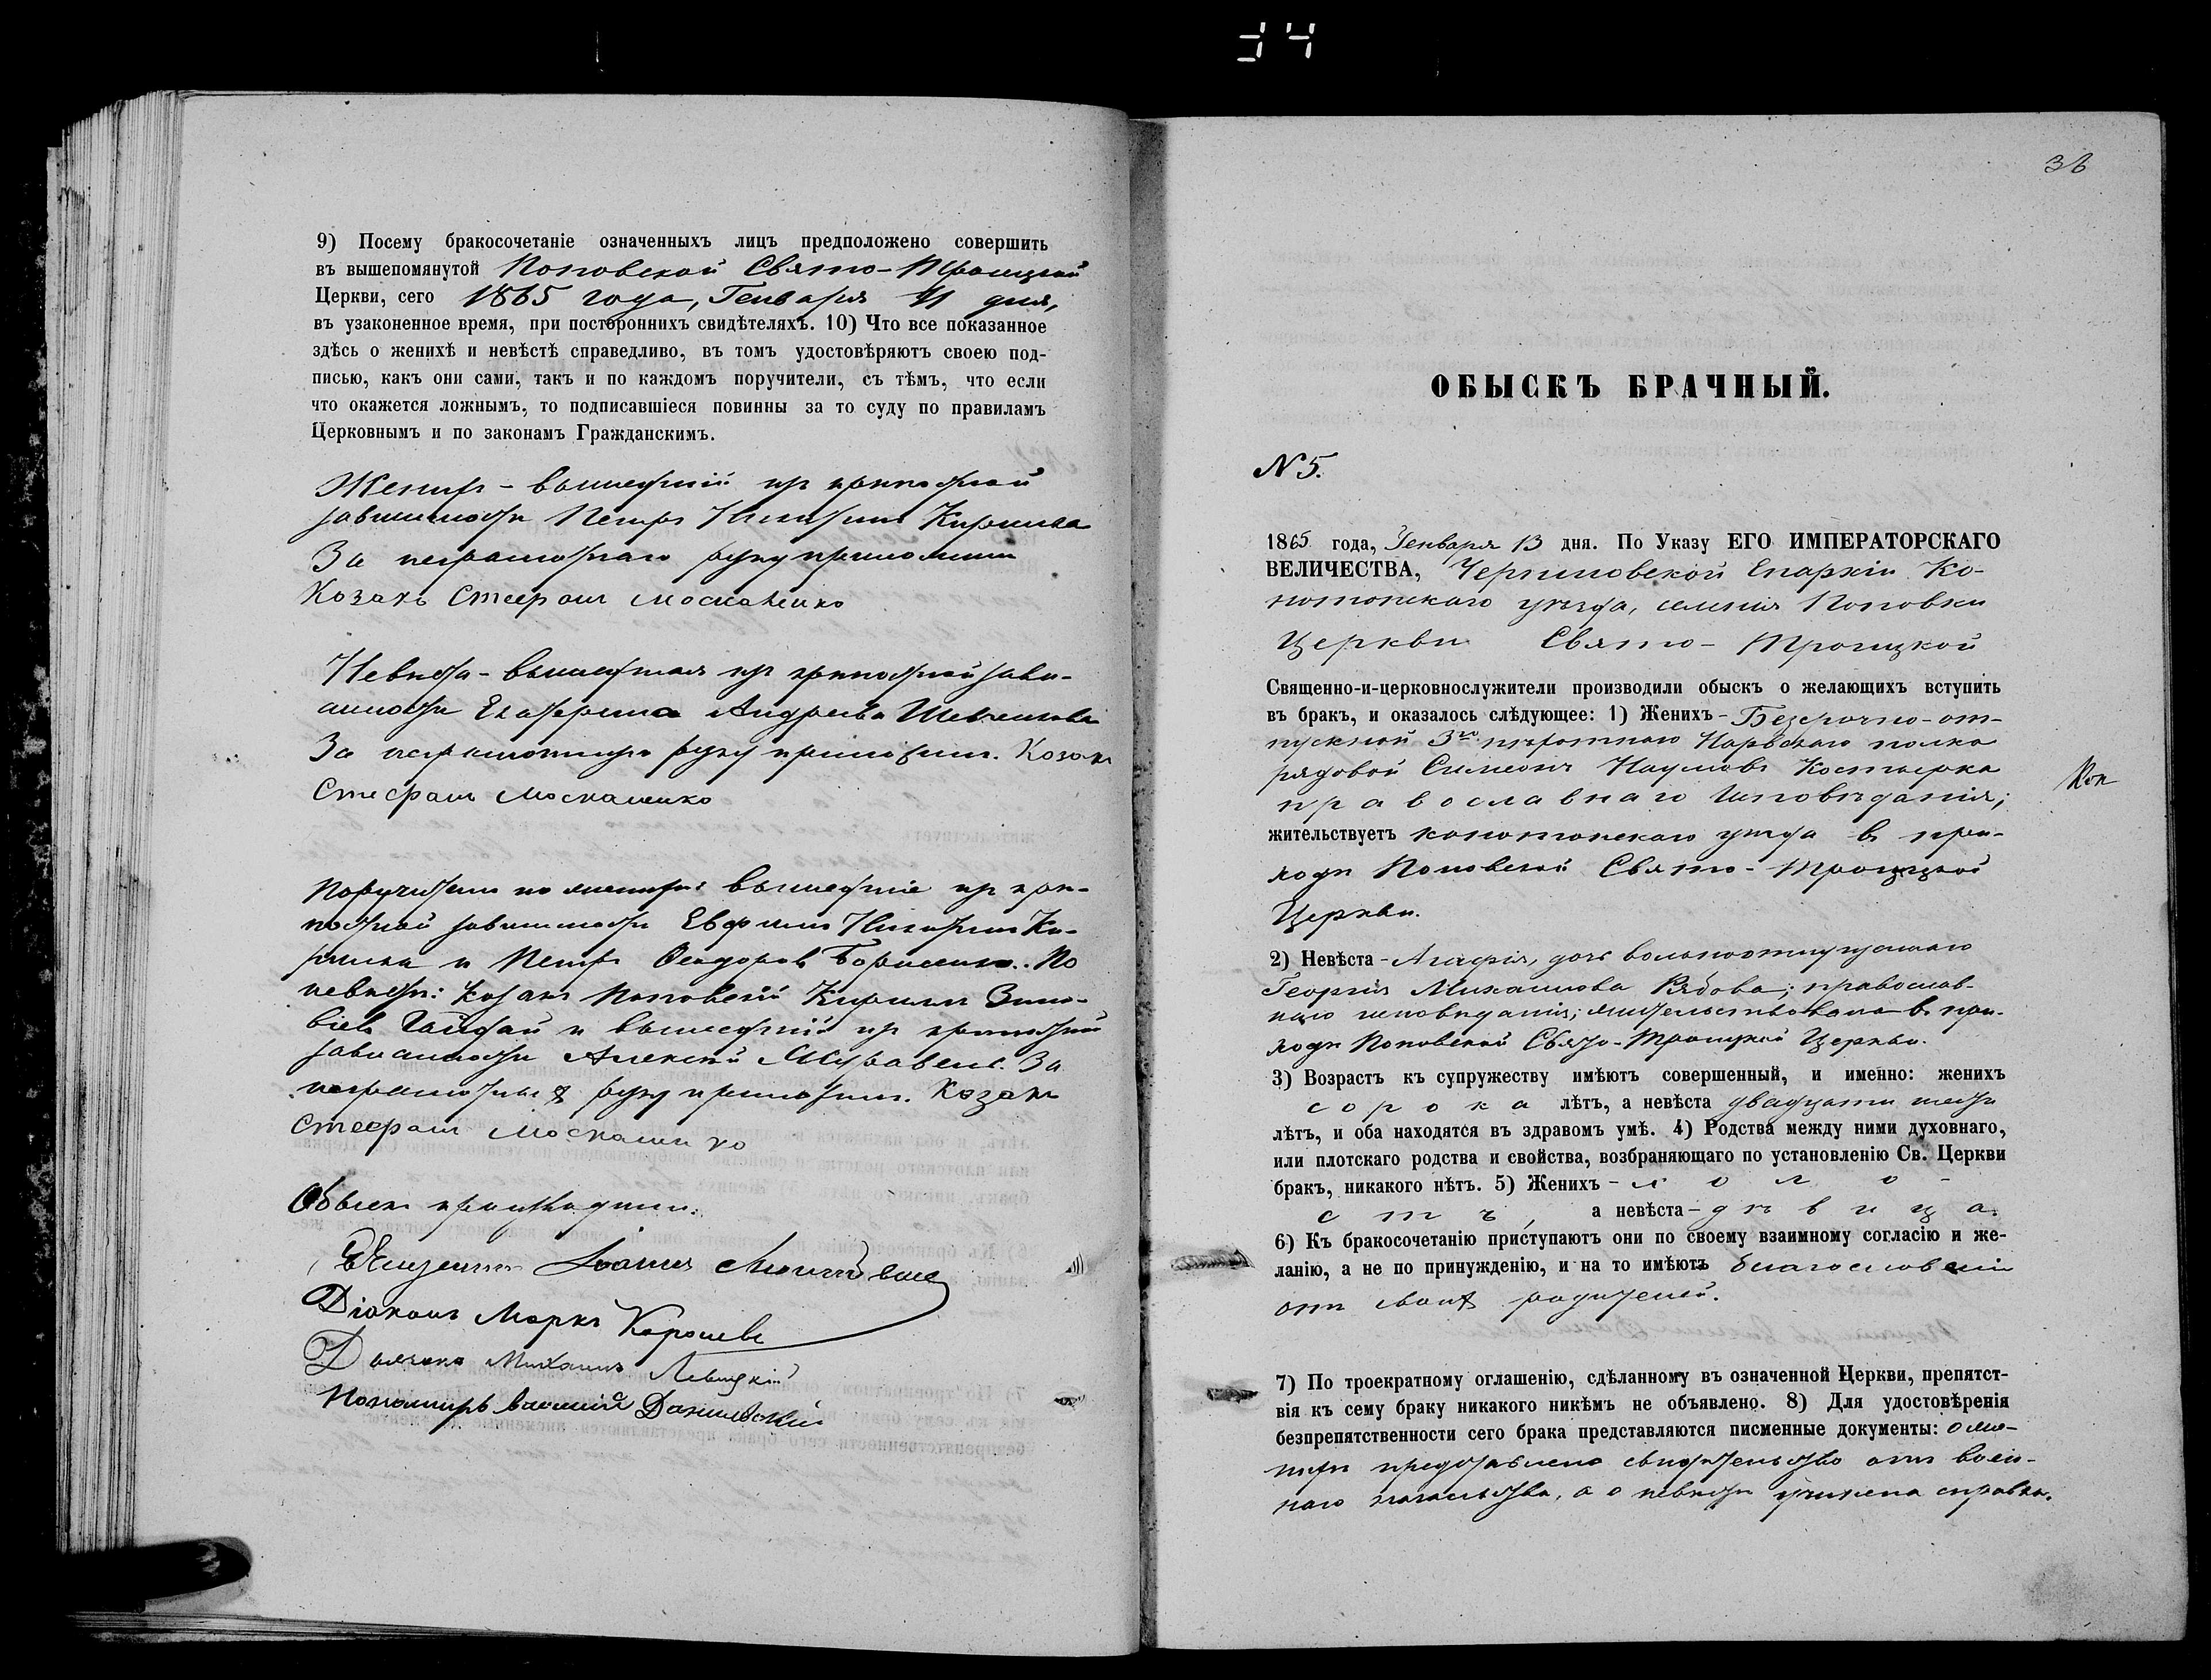 34
9) Посему бракосочетаніе означенныхъ лицъ предположено совершить
въ вышепомянутой Поповской Свято-Троицкой
Церкви, сего 1865 года, Генваря 11 дня,
въ узаконенное время, при постороннихъ свидѣтеляхъ. 10) Что все показанное
здѣсь о женихѣ и невѣстѣ справедливо, въ томъ удостовѣряютъ своею под-
писью, какъ они сами, такъ и по каждомъ поручители, съ тѣмъ, что если
что окажется ложнымъ, то подписавшіеся повинны за то суду по правиламъ
Церковнымъ и по законамъ Гражданскимъ.
Женихъ - вышедшій изъ крѣпостной
зависимости Петръ Никитинъ Киришка
За неграмотнаго руку приложилъ
Козакъ Стефанъ Москаленко
Невѣста - вышедшая изъ крѣпостной зави-
симости Екатерина Андреева Шевченкова
За неграмотную руку приложилъ. Козакъ
Стефанъ Москаленко
Поручители по женихѣ: вышедшіе изъ крѣ-
постной зависимости Евфимъ Никитинъ Ки-
ришка и Петръ Феодоровъ Борисенко. По
невѣстѣ: Козакъ Поповскій Кириллъ Зино-
віевъ Гайдай и вышедшій изъ крѣпостной
зависимости Алексѣй Журавель. За
неграмотныхъ руку приложилъ. Козакъ
Стефанъ Москаленко
Обыскъ производили:
Священникъ Іоаннъ
Діаконъ Маркъ
Дьячокъ Михаилъ Левицкій
Пономарь Василій Данилевскій
36
ОБЫСКЪ БРАЧНЫЙ.
N 5.
1865 года, Генваря 13 дня. По Указу ЕГО ИМПЕРАТОРСКАГО
ВЕЛИЧЕСТВА, Черниговской Епархіи Ко-
нотопскаго уѣзда, селенія Поповки
Церкви Свято-Троицкой
Священно-и-церковнослужители производили обыскъ о желающихъ вступить
въ бракъ, и оказалось слѣдующее: 1) Женихъ - Безсрочно-от-
пускной 3го пѣхотнаго Нарвскаго полка
рядовой Симеонъ Наумовъ Костырка
православнаго исповѣданія;
жительствуетъ конотопскаго уѣзда въ при-
ходѣ Поповской Свято-Троицкой
Церкви.
2) Невѣста - Агафія, дочь вольноотпущеннаго
Георгія Михаилова Рябова; православ-
наго исповѣданія; жительствовала въ при-
ходѣ Поповской Свято-Троицкой Церкви.
3) Возрастъ къ супружеству имѣютъ совершенный, и именно: женихъ
сорока лѣтъ, а невѣста двадцати шести
лѣтъ, и оба находятся въ здравомъ умѣ. 4) Родства между ними духовнаго,
или плотскаго родства и свойства, возбраняющаго по установленію Св. Церкви
бракъ, никакого нѣтъ. 5) Женихъ - холо-
стъ, а невѣста - дѣвица.
6) Къ бракосочетанію приступаютъ они по своему взаимному согласію и же-
ланію, а не по принужденію, и на то имѣютъ благословеніе
отъ своихъ родителей.
7) По троекратному оглашенію, сдѣланному въ означенной Церкви, препятст-
вія къ сему браку никакого никѣмъ не объявлено. 8) Для удостовѣренія
безпрепятственности сего брака представляются писменные документы: о же-
нихѣ представлено свидѣтельство отъ воен-
наго начальства, а о невѣстѣ учинена справка.